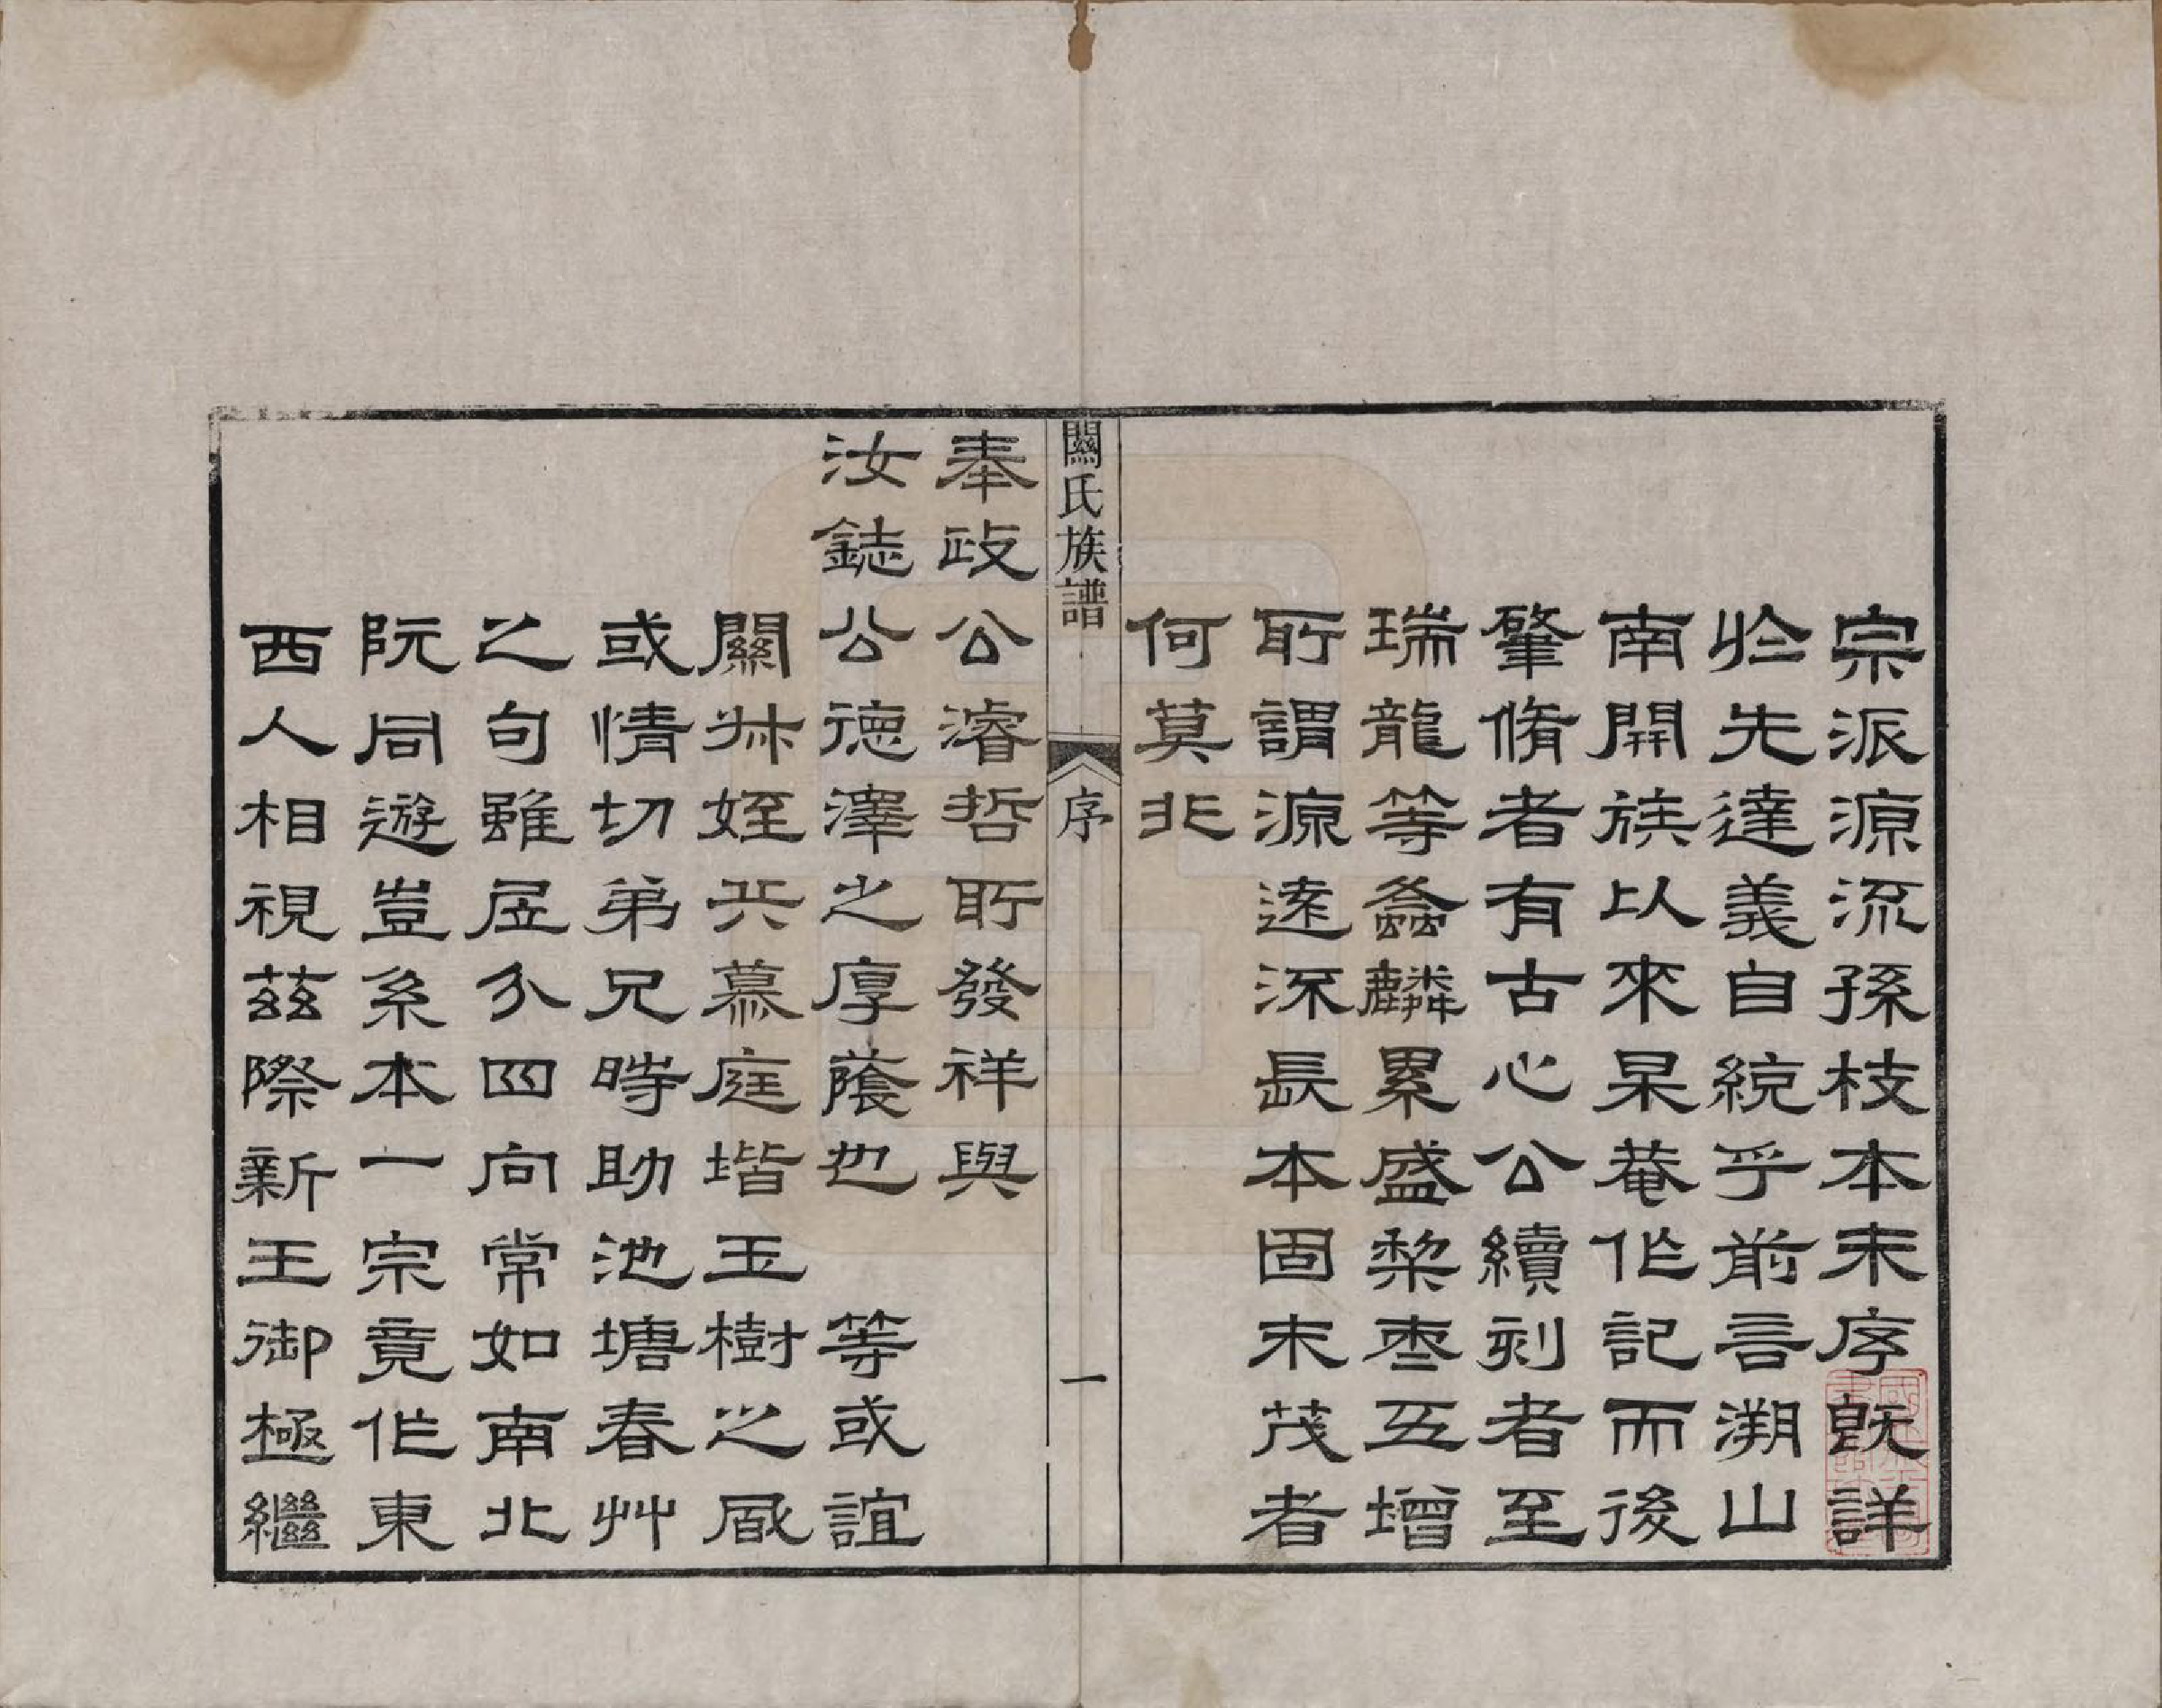 宗派源流孫枝本末序旣詳
於先達義自統乎前言溯山
南開族以來杲菴作記而後
肇脩者有古心公續刻者至
瑞龍等螽麟累盛棃棗五增
所謂源遠深長本固末茂者
何莫非
關氏族譜 序 一
奉政公濬哲所發祥與
汝鋕公德澤之厚蔭也 等或誼
關叔姪共慕庭堦玉樹之風
或情切弟兄時助池塘春艸
之句雖居分四向常如南北
阮同遊豈系本一宗竟作東
西人相視茲際新王御極繼